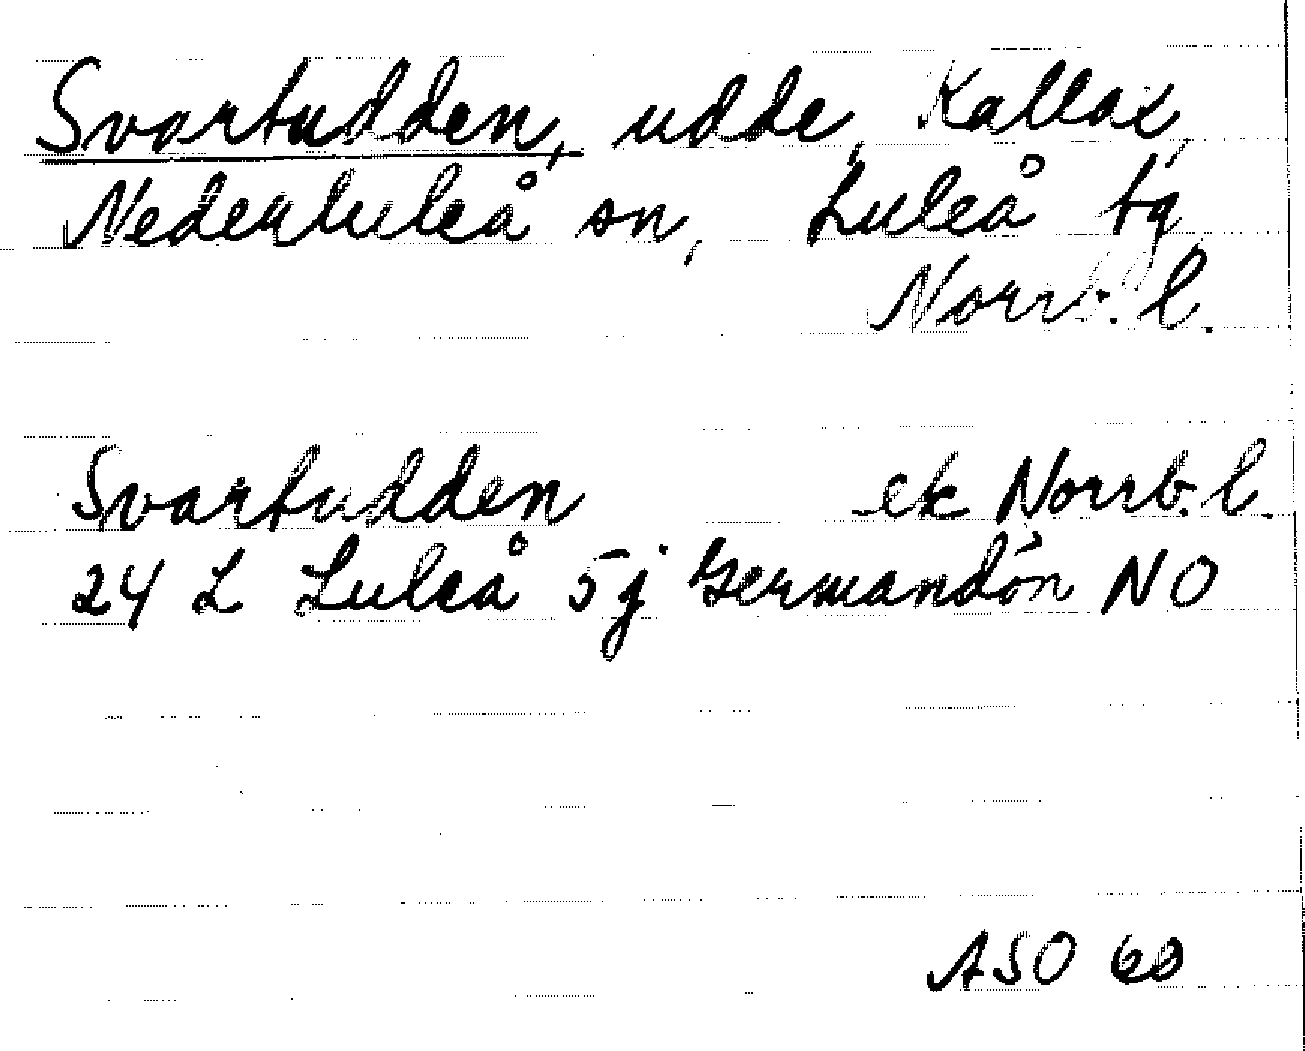 Svartudden, udde, Kallax,
Nederluleå sn, Luleå tg,
Norrb. l.
Svartudden ek Norrb. l.
24 L Luleå 5j Germandön NO
ASO 60